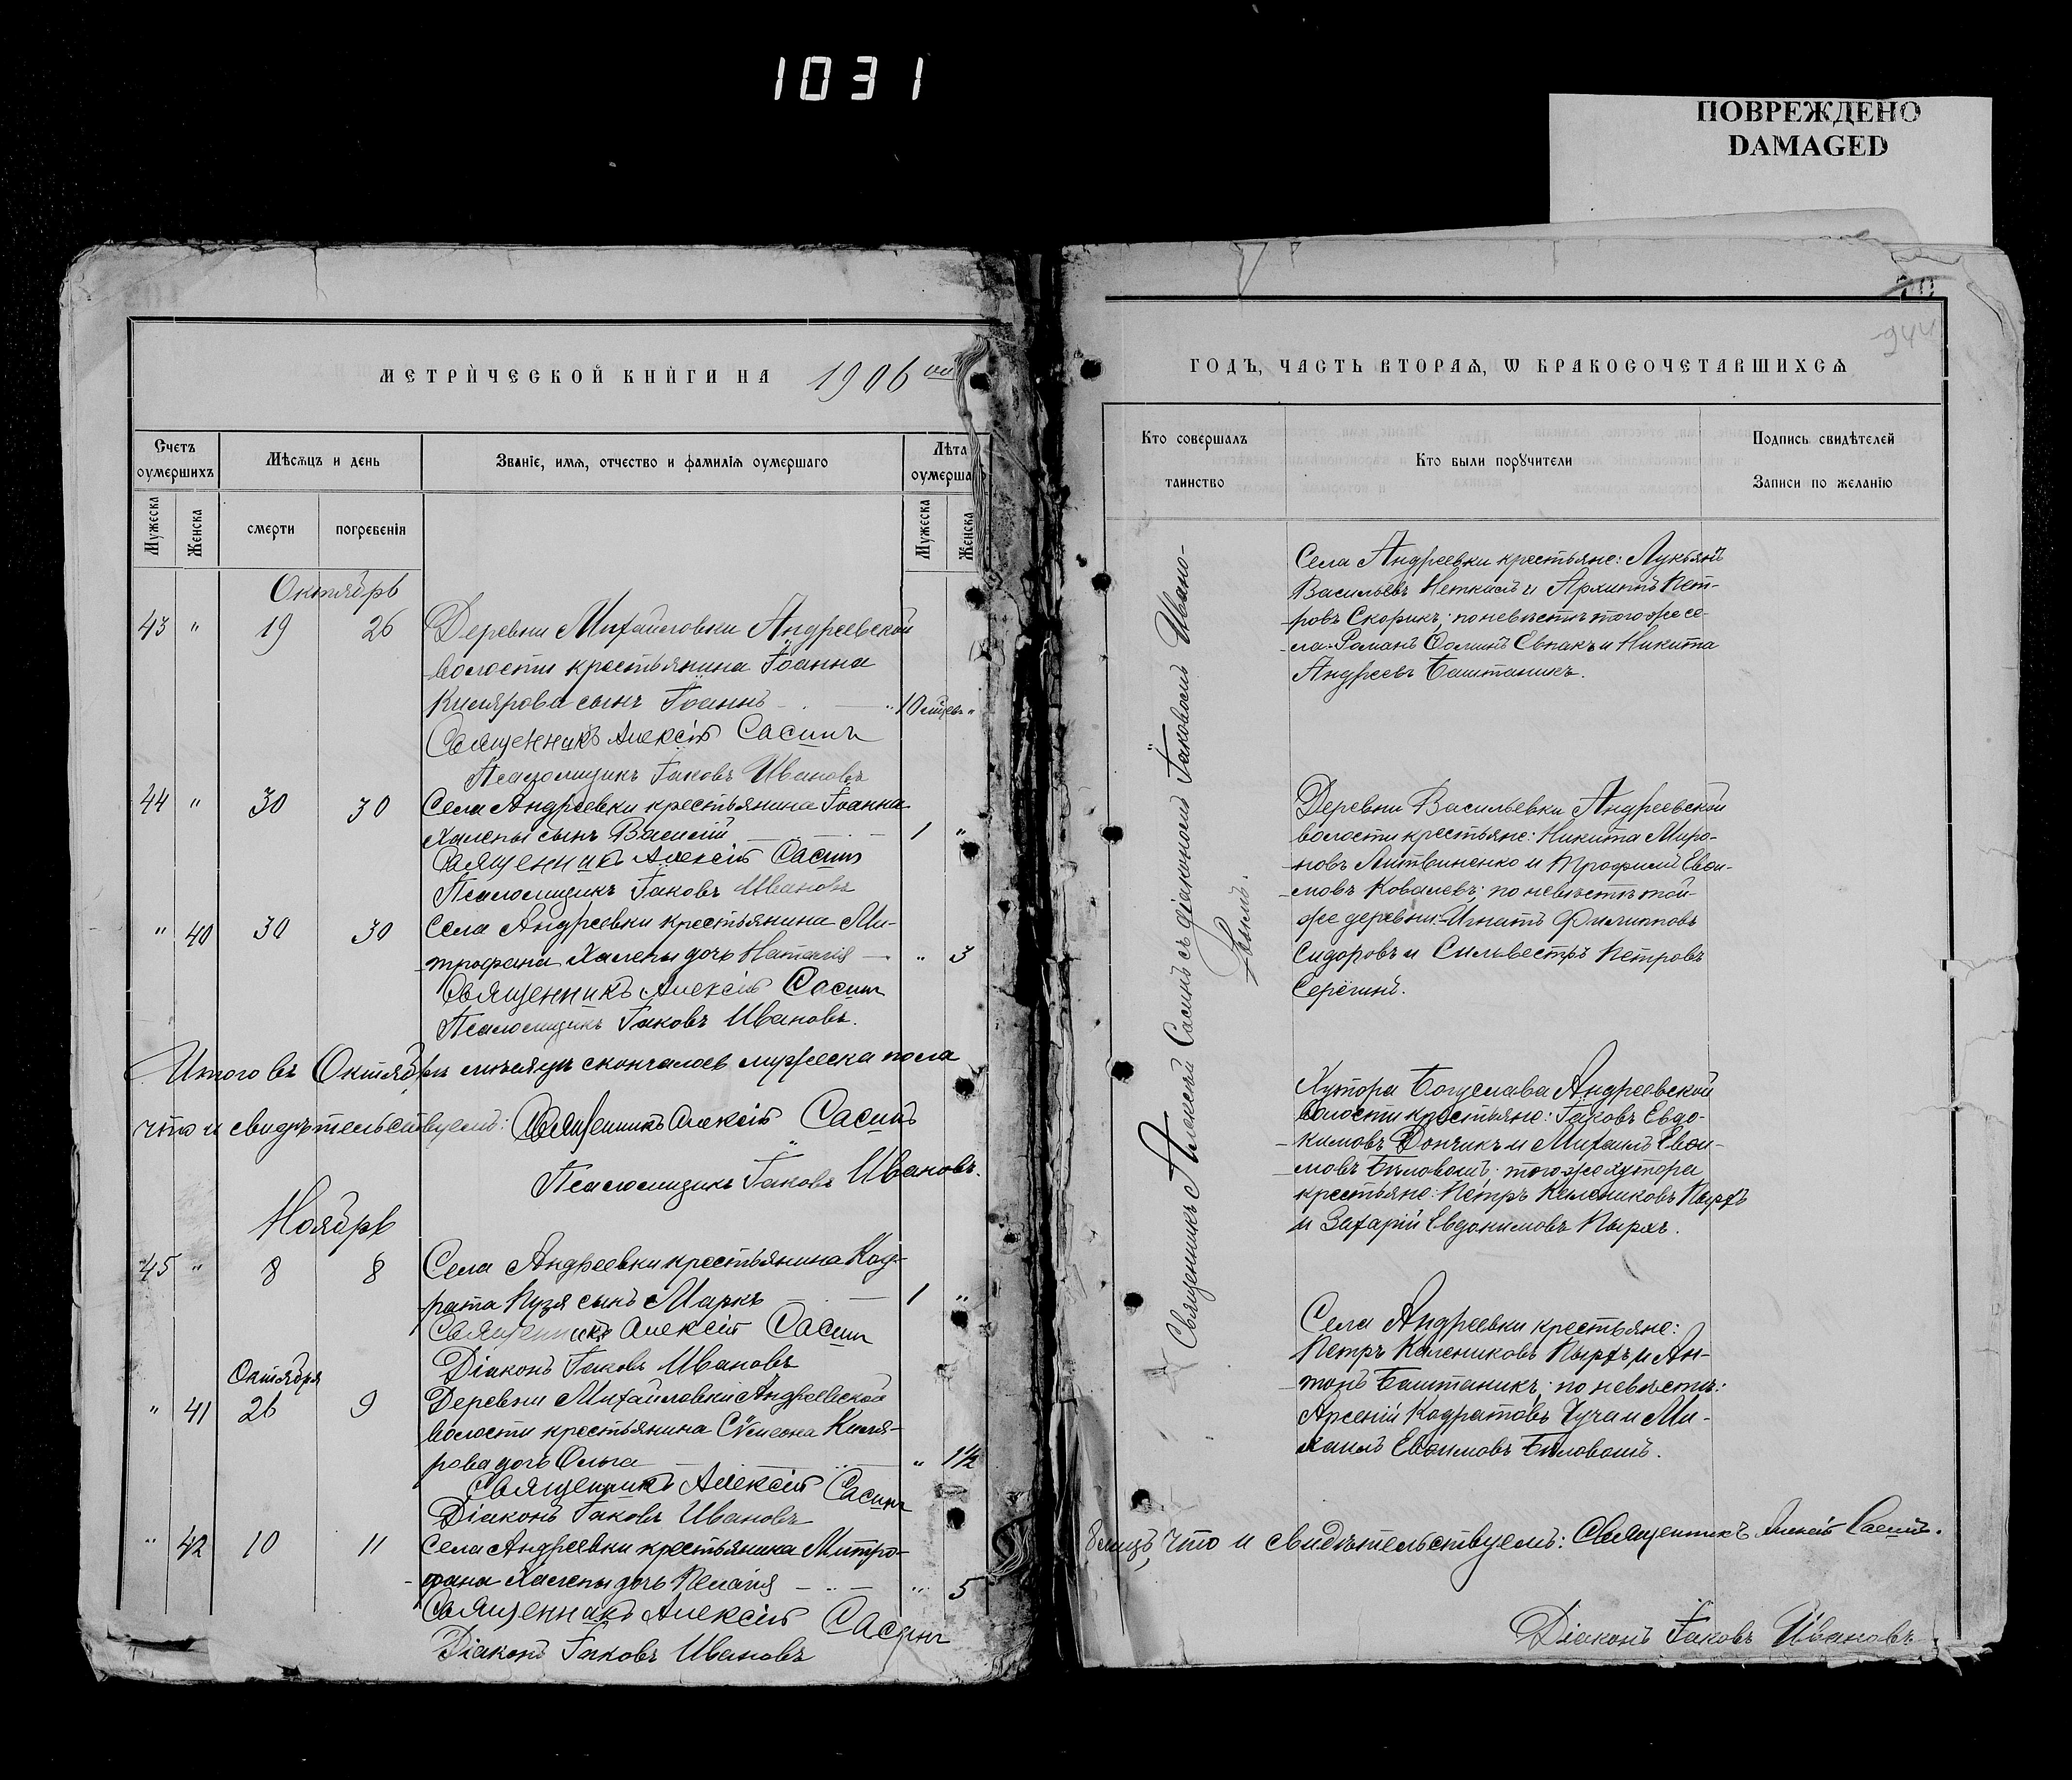 1031
ПОВРЕЖДЕНО
DAMAGED
МЕТРИ́ЧЕСКОЙ КНИ́ГИ НА 1906 ой
Счетъ оумершихъ
Мѣсѧцъ и день
Званіе, имѧ, отчество и фамиліѧ оумершаго
Лѣта оумерша
Мужеска
Женска
смерти
погребеніѧ
Мужеска
Женска
Октябрь
43 " 19 26 Деревни Михайловки Андреевской
волости крестьянина Іоанна
Кислярова сынъ Іоаннъ 10 мѣсяцев "
Священникъ Алексій Сасинъ
Псаломщикъ Іаковъ Ивановъ
44 " 30 30 Села Андреевки крестьянина Іоанна
Халепы сынъ Василій 1 "
Священникъ Алексій Сасинъ
Псаломщикъ Іаковъ Ивановъ
" 40 30 30 Села Андреевки крестьянина Ми-
трофана Халепы дочь Наталія " 3
Священникъ Алексій Сасинъ
Псаломщикъ Іаковъ Ивановъ.
Итого въ Октябрѣ мѣсяцѣ скончалось мужеска пола
что и свидѣтельствуемъ: Священникъ Алексій Сасинъ
Псаломщикъ Іаковъ Ивановъ.
Ноябрь
45 " 8 8 Села Андреевки крестьянина Код-
рата Пузя сынъ Маркъ 1 "
Священникъ Алексій Сасинъ
Діаконъ Іаковъ Ивановъ
Октября
" 41 26 9 Деревни Михайловки Андреевской
волости крестьянина Сѵмеона Кисля-
рова дочь Ольга " 1½
Священникъ Алексій Сасинъ
Діаконъ Іаковъ Ивановъ
" 42 10 11 Села Андреевки крестьянина Митро-
фана Халепы дочь Пелагія " 5
Священникъ Алексій Сасинъ
Діаконъ Іаковъ Ивановъ
70
944
ГОДЪ, ЧАСТЬ ВТОРАѦ, Ѡ БРАКОСОЧЕТАВШИХСѦ
Кто совершалъ таинство
Кто были порꙋчители
Подпись свидѣтелей
Записи по желанію
Священникъ Алексѣй Сасинъ съ діакономъ Іаковомъ Ивано-
вымъ.
Села Андреевки крестьяне: Лукьянъ
Васильевъ и Архиппъ Пет-
ровъ Скорикъ; по невѣстѣ того же се-
ла Романъ Ѳоминъ Евпакъ и Никита
Андреевъ Баштаникъ.
Деревни Васильевки Андреевской
волости крестьяне: Никита Миро-
новъ Литвиненко и Трофимъ Евѳи-
мовъ Ковалевъ; по невѣстѣ той-
же деревни: Игнатъ Филипповъ
Сидоровъ и Сильвестръ Петровъ
Серёгинъ.
Хутора Богуслава Андреевской
волости крестьяне: Іаковъ Евдо-
кимовъ Дончикъ и Михаилъ Евѳи-
мовъ Бѣловолъ; того-же хутора
крестьяне: Петръ Келениковъ Пырхъ
и Захарій Евдокимовъ Пырхъ.
Села Андреевки крестьяне:
Петръ Келениковъ Пырхъ и Ан-
тонъ Баштаникъ; по невѣстѣ:
Арсеній Кодратовъ Гуча и Ми-
хаилъ Евѳимовъ Бѣловолъ.
что и свидѣтельствуемъ: Священникъ Алексій Сасинъ.
Діаконъ Іаковъ Ивановъ